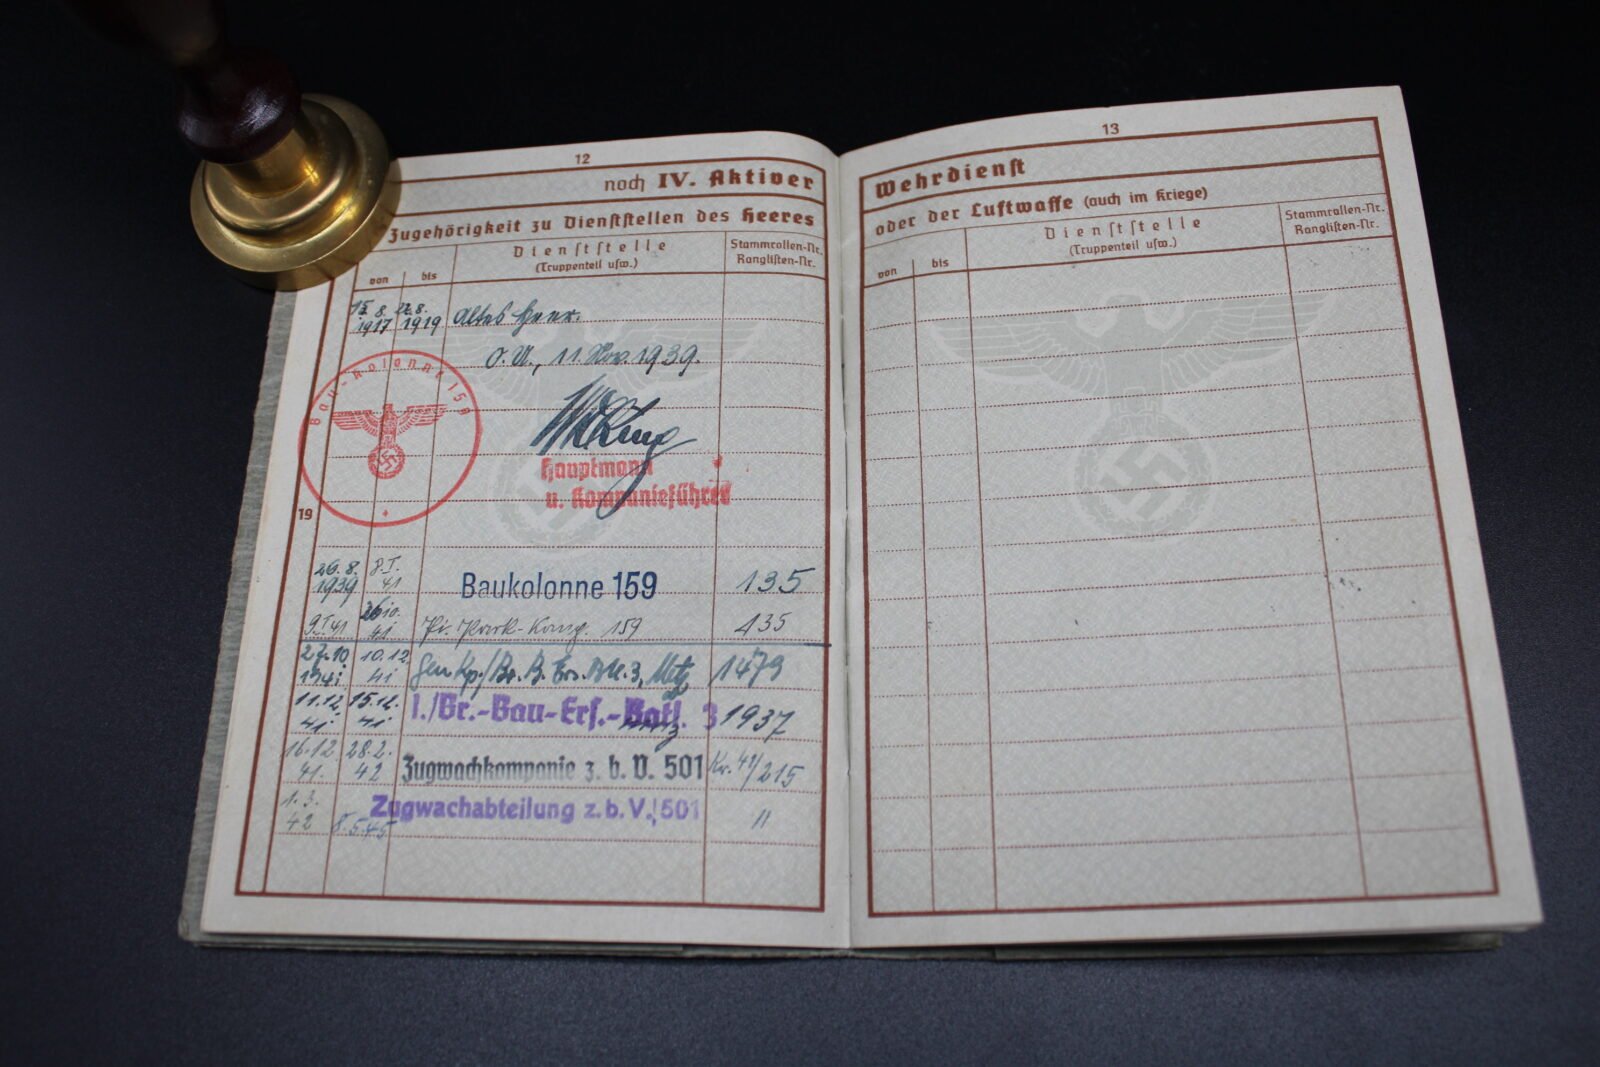 12
noch IV. Aktiver
Zugehörigkeit zu Dienststellen des Heeres
von bis Dienststelle (Truppenteil usw.) Stammrollen-Nr. Ranglisten-Nr.
15. 8. 1917 22.8. 1919 Altes Heer.
O.U., 11. Nov. 1939.
Bau-Kolonne 159
Hauptmann
u. Kompanieführer
19
26.8. 1939 8.I. 41 Baukolonne 159 135
9.I.41 26.10. 41 Pi. Park-Komp. 159 135
27.10 1941 10.12 41 Gen.Kp./Br.B.Ers.Btl.3, Metz 1479
11.12. 41 15.12. 41 1./Br.-Bau-Ers.-Batl. 3 1937
16.12. 41. 28.2. 42 Zugwachkompanie z. b. V. 501 Kr. 41/215
1.3. 42 8.5.45 Zugwachabteilung z.b.V. 501 "
13
Wehrdienst
oder der Luftwaffe (auch im Kriege)
von bis Dienststelle (Truppenteil usw.) Stammrollen-Nr. Ranglisten-Nr.